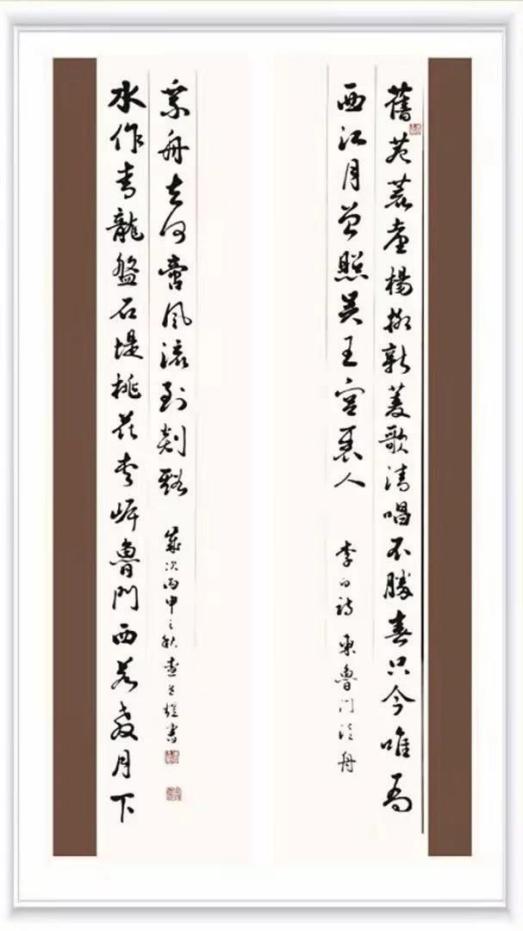 舊苑荒臺楊柳新菱歌清唱不勝春只今唯有
西江月曾照吳王宮裏人 李白詩 東魯門泛舟
水作青龍盤石堤桃花夾岸魯門西若教月下
乘舟去何啻風流到剡谿 歲次丙申之秋 書